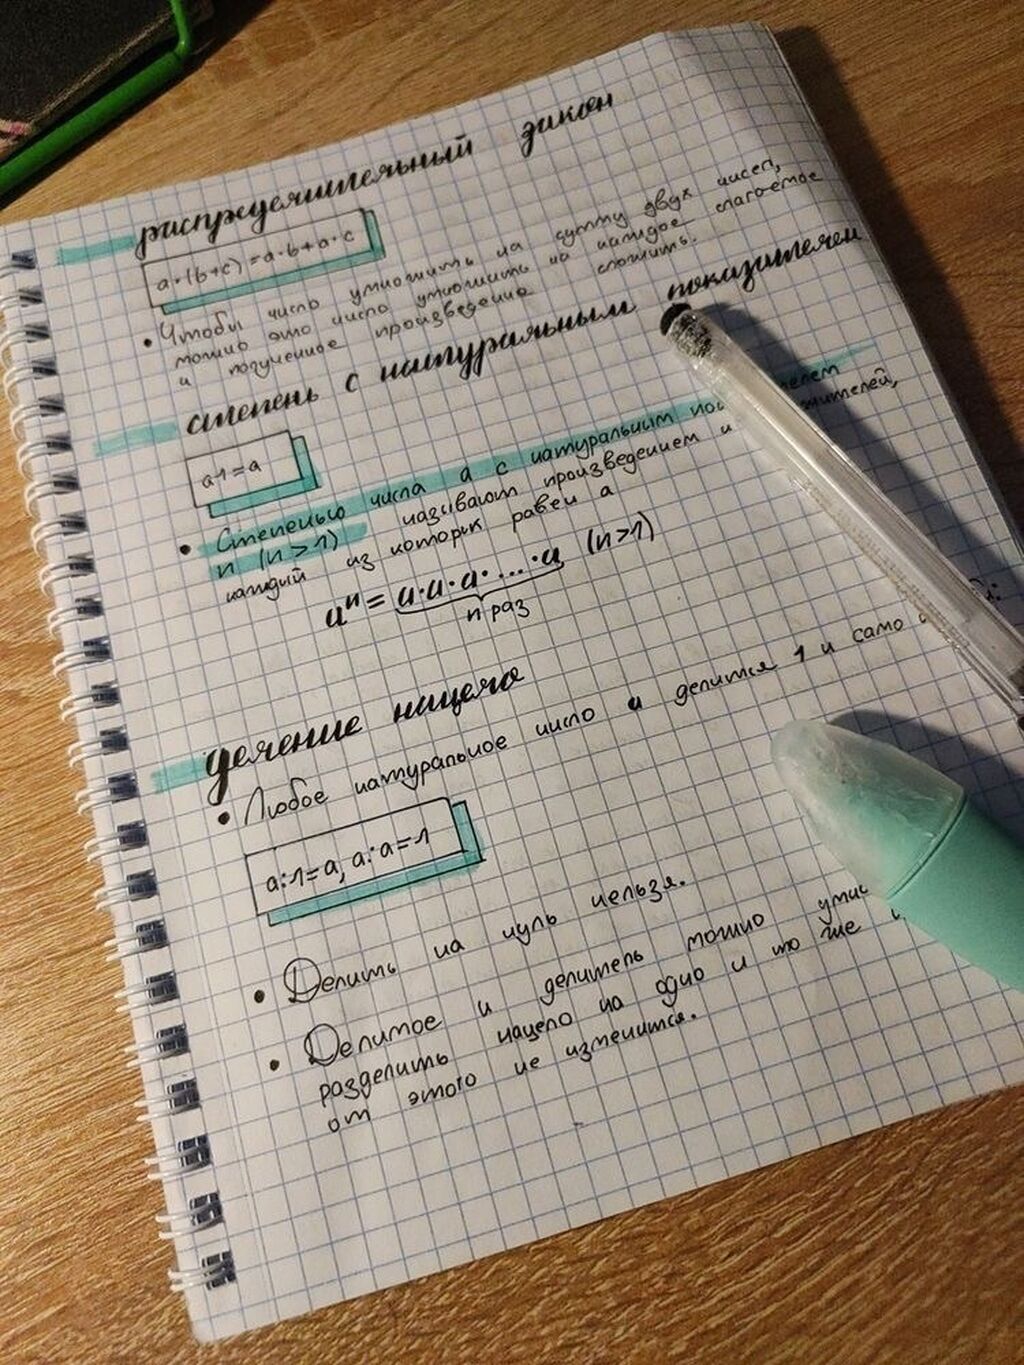 распределительный закон
a·(b+c)=a·b+a·c
• Чтобы число умножить на сумму двух чисел,
можно это число умножить на каждое слагаемое
и полученное произведение сложить.
степень с натуральным показателем
a1=a
• Степенью числа a с натуральным
n (n>1) называют произведением n
каждий из которых равен a
aⁿ = a·a·a·...·a (n>1)
n раз
деление нацело
• Любое натуральное число a делится 1 и само
a:1=a, a:a=1
• Делить на нуль нельзя.
• Делимое и делитель можно
разделить нацело на одно и то же
от этого не изменится.